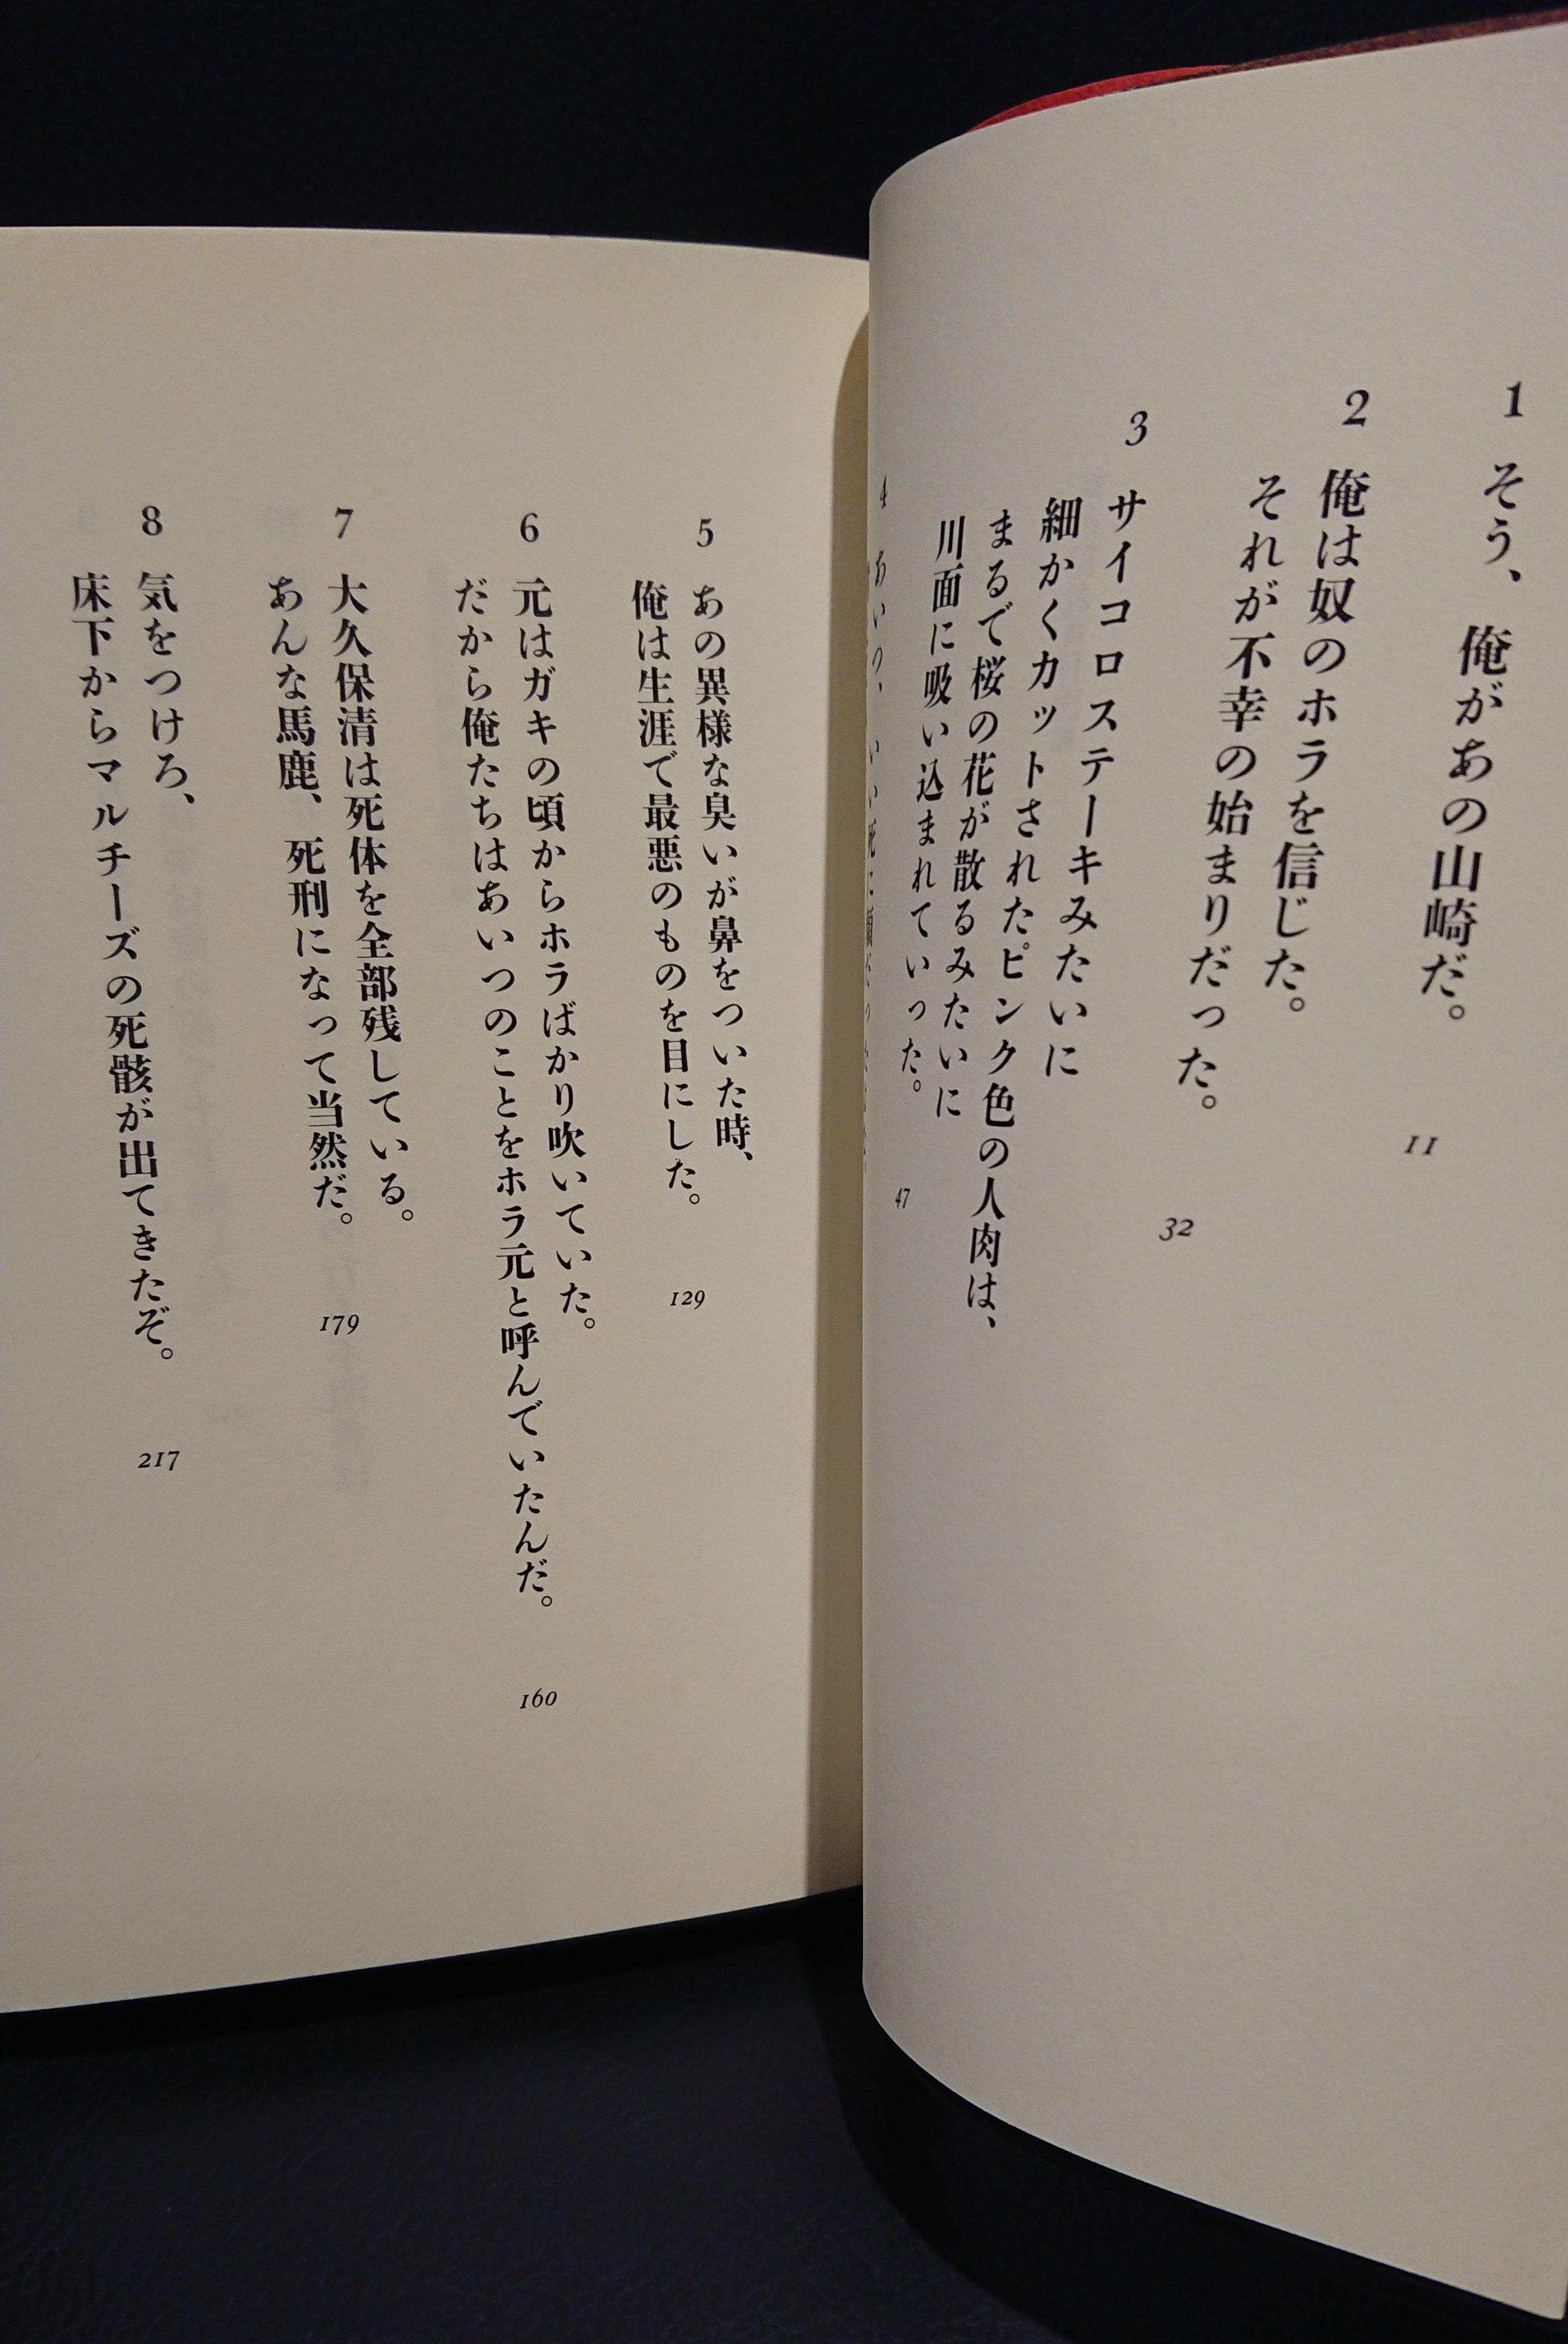 1
そう、俺があの山崎だ。
11
2
俺は奴のホラを信じた。
それが不幸の始まりだった。
32
3
サイコロステーキみたいに
細かくカットされたピンク色の人肉は、
まるで桜の花が散るみたいに
川面に吸い込まれていった。
47
4
あいつ、
5
あの異様な臭いが鼻をついた時、
俺は生涯で最悪のものを目にした。
129
6
元はガキの頃からホラばかり吹いていた。
だから俺たちはあいつのことをホラ元と呼んでいたんだ。
160
7
大久保清は死体を全部残している。
あんな馬鹿、死刑になって当然だ。
179
8
気をつけろ、
床下からマルチーズの死骸が出てきたぞ。
217